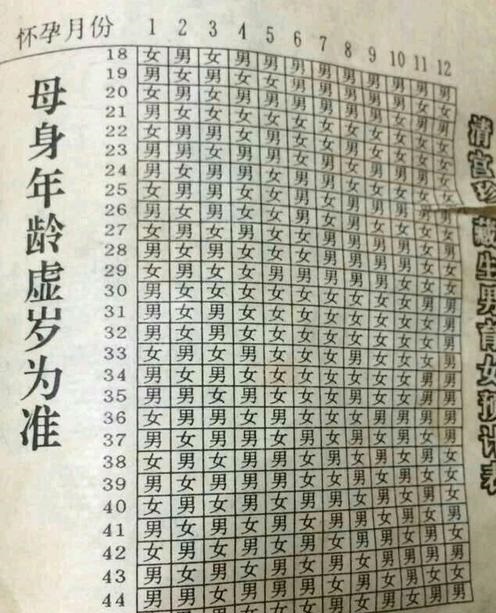 怀孕月份 1 2 3 4 5 6 7 8 9 10 11 12
18 女 男 女 男 男 男 男 男 男 男 男 男
19 男 女 男 女 女 男 男 男 男 男 女 女
20 女 男 女 男 男 男 男 男 男 女 男 男
21 男 女 女 女 女 女 女 女 女 女 女 女
22 女 男 男 女 男 女 女 男 女 女 女 女
23 男 男 女 男 男 女 男 女 男 男 男 女
24 男 女 男 男 女 男 男 女 女 女 女 女
25 女 男 男 女 女 男 女 男 男 男 男 男
26 男 女 男 女 女 男 女 男 女 女 女 女
27 女 男 女 男 女 女 男 男 男 男 女 男
28 男 女 男 女 女 女 男 男 男 男 女 女
29 女 男 女 女 男 男 男 男 男 女 女 女
30 男 女 女 女 女 女 女 女 女 女 男 男
31 男 女 男 女 女 女 女 女 女 女 女 男
32 男 女 男 女 女 女 女 女 女 女 女 男
33 女 男 女 男 女 女 女 男 女 女 女 男
34 男 女 男 女 女 女 女 女 女 女 男 男
35 男 男 女 男 女 女 女 男 女 女 男 男
36 女 男 男 女 男 女 女 女 男 男 男 男
37 男 女 男 男 女 男 女 男 女 男 女 男
38 女 男 女 男 男 女 男 女 男 女 男 女
39 男 女 男 男 男 女 女 男 女 男 女 女
40 女 男 女 男 女 男 男 女 男 女 男 女
41 男 女 男 女 男 女 男 男 女 男 女 男
42 女 男 女 男 女 男 女 男 男 女 男 女
43 男 女 男 女 男 女 男 女 男 男 男 男
44 男 男 女 男 男 男 女 男 女 男 女 女
母身年龄虚岁为准
清宫珍藏生男育女预计表